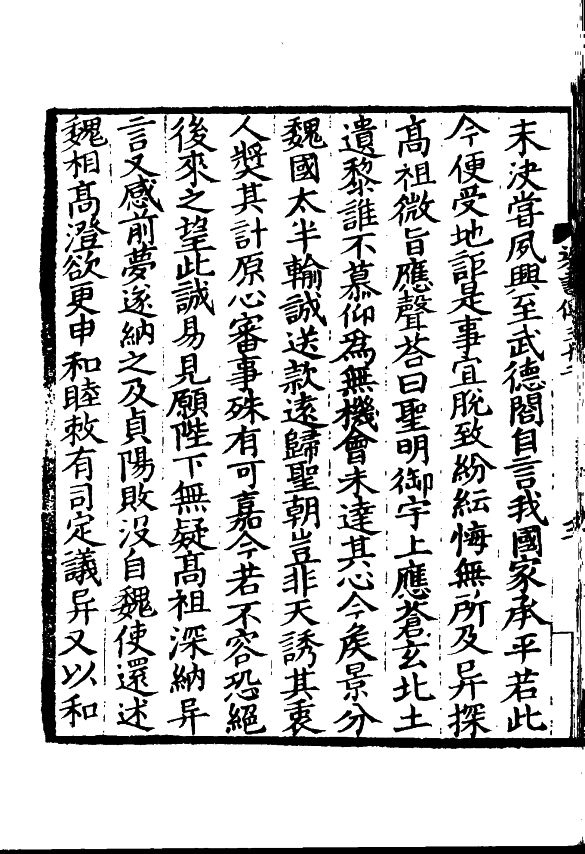 未決嘗夙興至武德閤自言我國家承平若此
今便受地詎是事宜脫致紛紜悔無所及异探
髙祖微旨應聲荅曰聖明御宇上應蒼玄北土
遺黎誰不慕仰為無機會未達其心今矦景分
魏國太半輸誠送款逺歸聖朝豈非天誘其衷
人奬其計原心審事殊有可嘉今若不容恐絕
後來之望此誠易見願陛下無疑髙祖深納异
言又感前夢遂納之及貞陽敗没自魏使還述
魏相髙澄欲更申和睦敕有司定議异又以和